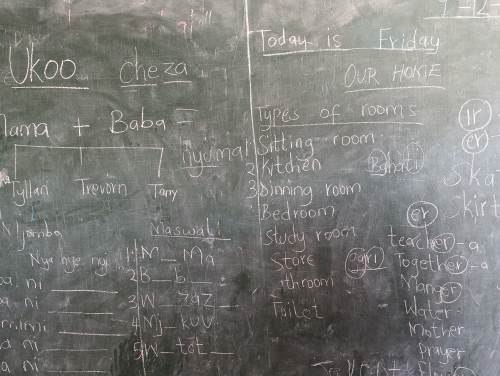 Ukoo cheza
Mama + Baba =
Tyllan Trevorn Tany
Njamba
Maswali
1 M_ Ma
2 B_ b_
3 W_ zaz_
4 Mj_ kuu
5 W_ tot_
ni
ni
ni
Today is Friday
OUR HOME
Types of rooms
Sitting room
2 Kitchen
Bahati
3 Dinning room
Bedroom
Study room
Store
gari
throom
Toilet
ir
er
ska
skirt
er
teacher-a
Together-a
Manger
Water
Mother
prayer